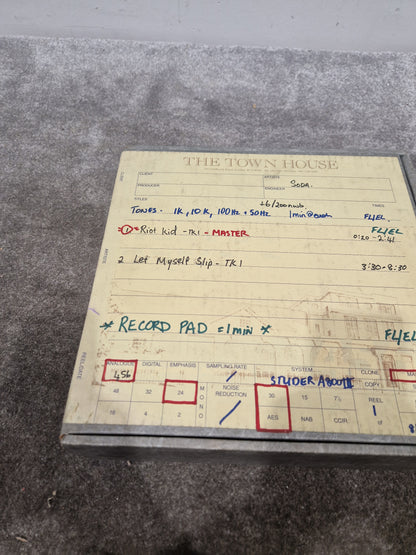 THE TOWN HOUSE
CLIENT
ARTISTE
PRODUCER
ENGINEER
SODA.
TITLES
+6/200nwb
TIMES
TONES - 1K, 10K, 100Hz + 50Hz 1min @ each
① Riot kid - TK1 - MASTER
0:20 - 2:41
2 Let Myself Slip - TK1 3:30 - 8:30
* RECORD PAD = 1 MIN *
REEL/DATE
ANALOGUE DIGITAL EMPHASIS SAMPLING RATE SYSTEM CLONE MA
456 STUDER A800III COPY
48 32 24 MONO NOISE REDUCTION 30 15 7½ REEL
16 4 2 AES NAB CCIR 1 of